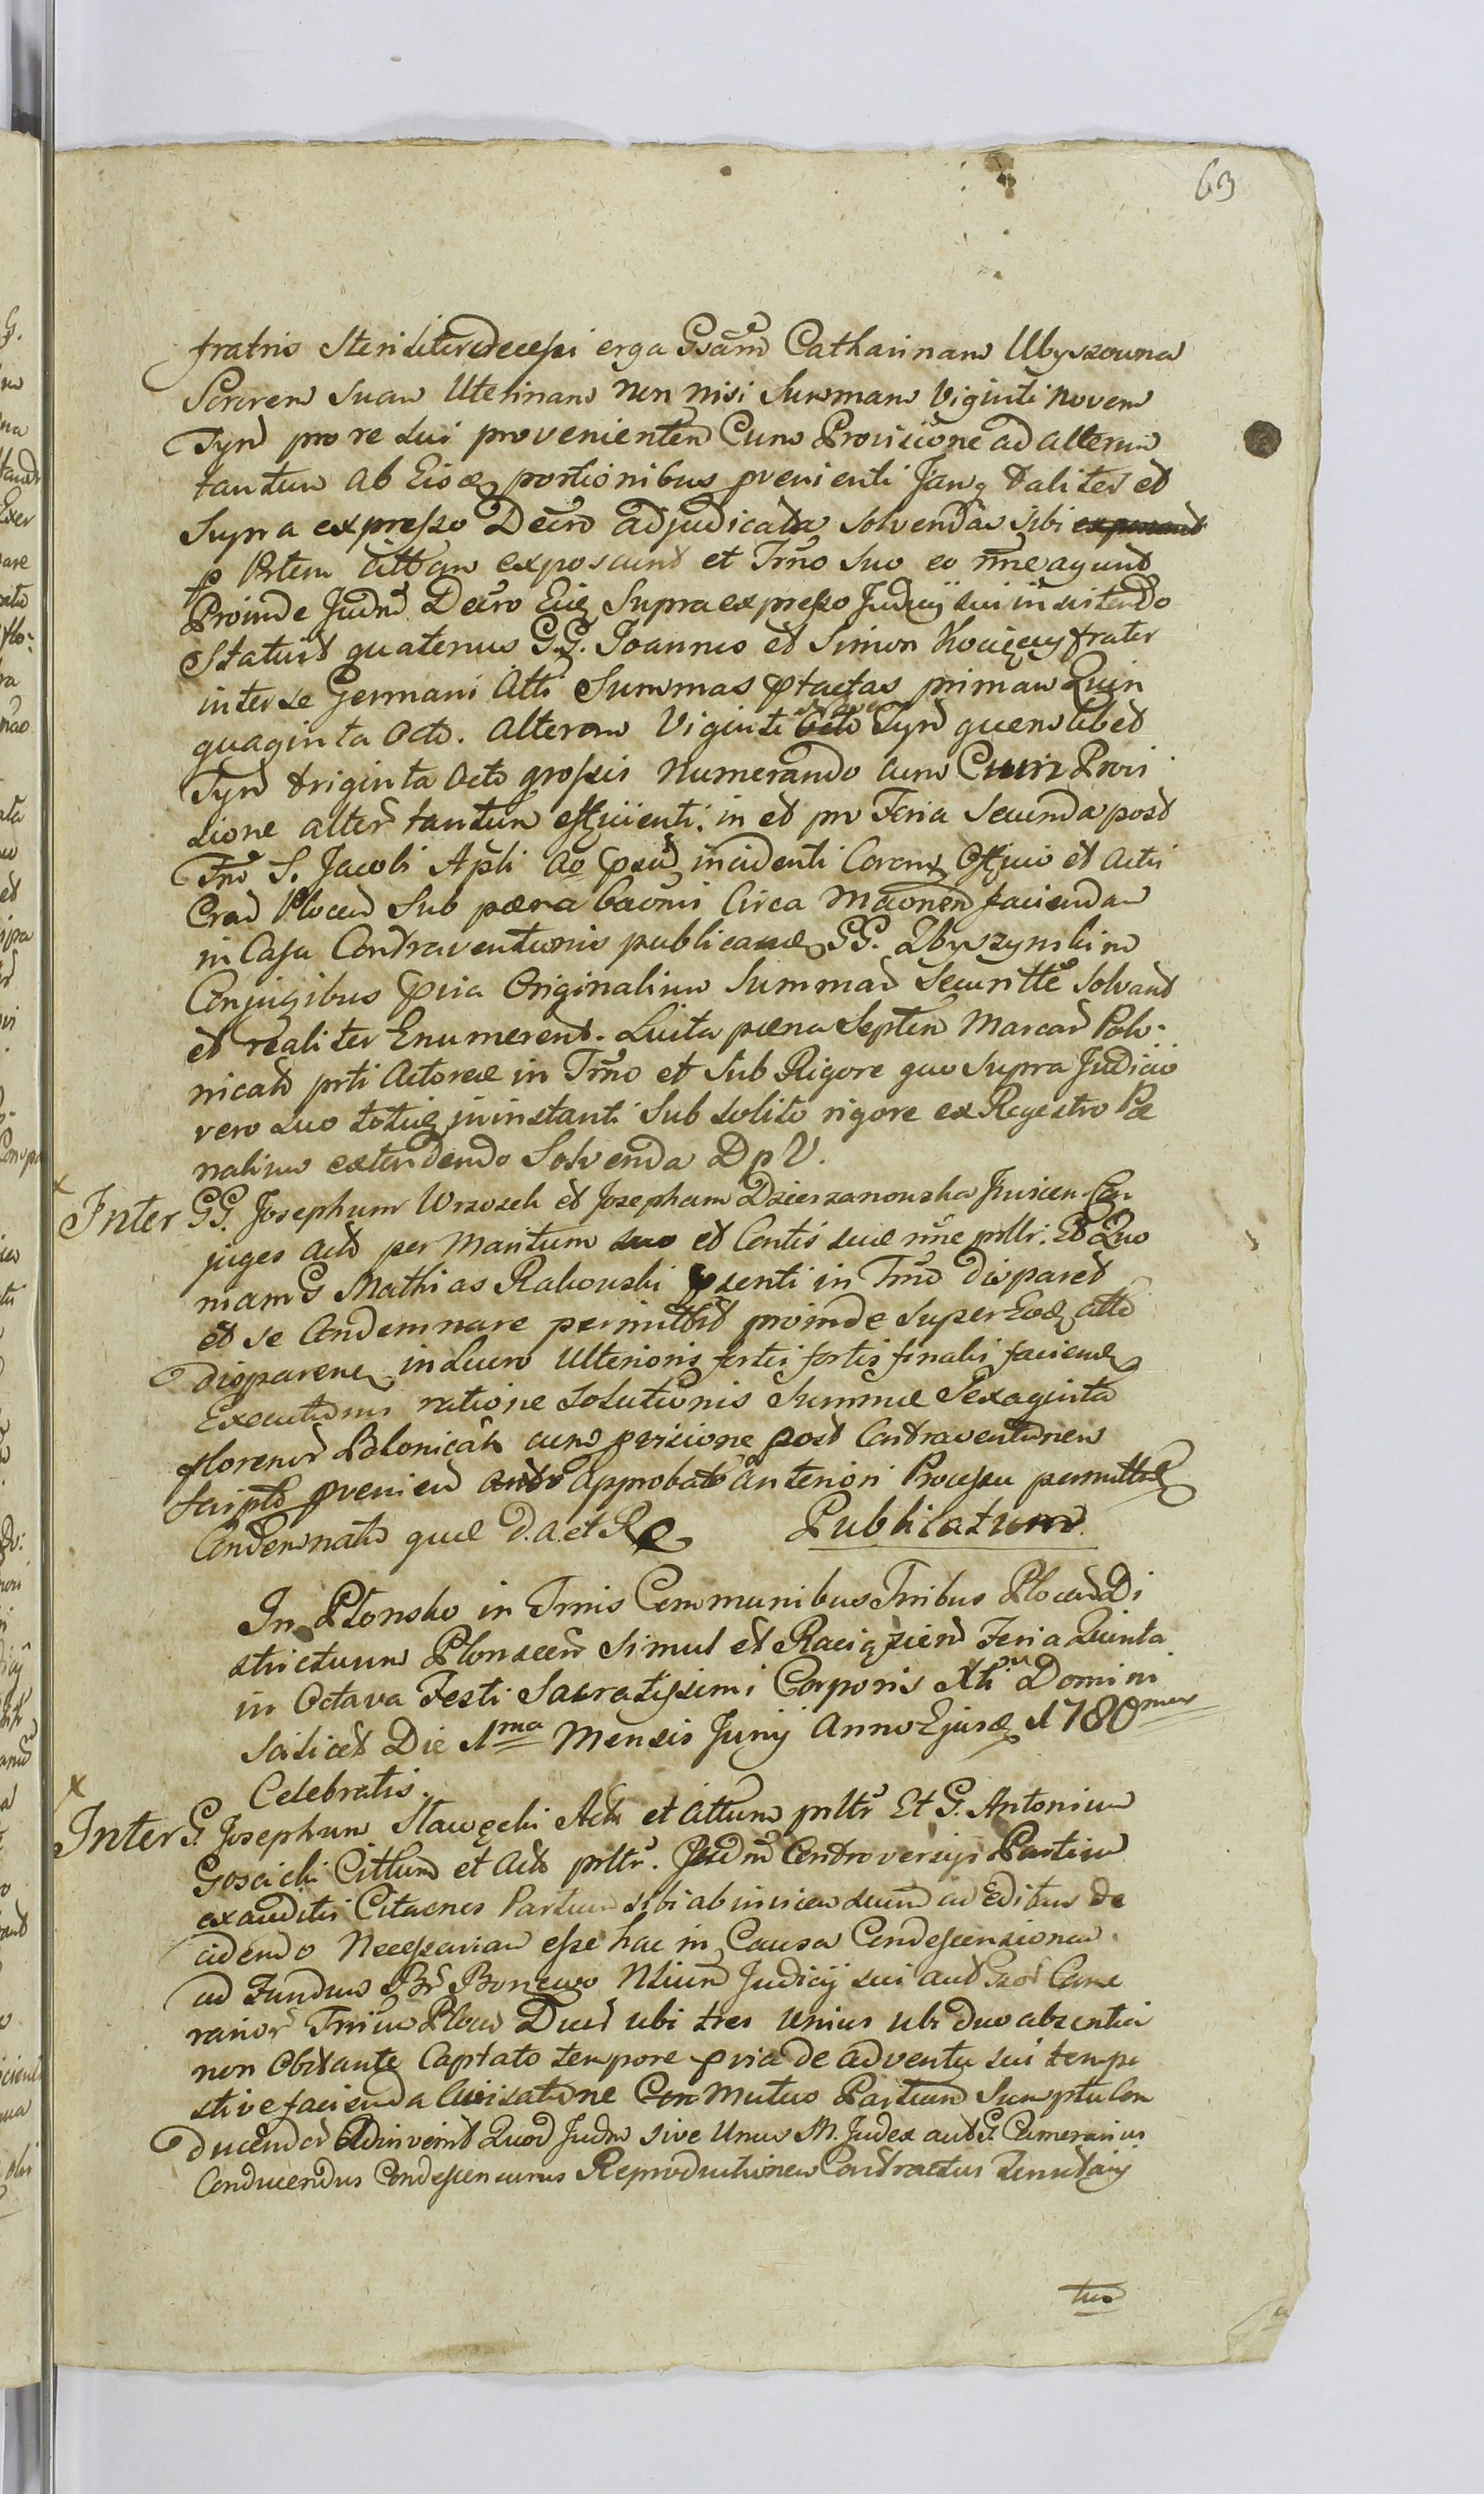 63
fratris steriliter decessi erga Gsam Catharinam Ubyszowna
Sororem suam Uterinam non nisi Summam Viginti novem
Tyn pro re sui provenienten Cum Provisione ad alterum
tantum ab Eisdem portionibus pvenienti Janq taliter et
Supra expresso Decro adjudicata solvendas sibi
p Ptem Cittam exposcunt et Trno suo eo nne agunt
Proinde Judm Decro Ejus Supra expresso Judicij sui insistendo
Statuit quatenus G.G. Joannes et Simon frater
inter se Germani Citti Summas ptactas primam Quin
quaginta Octo. alteram Viginti Tyn quemlibet
Tyn triginta Octo grossis numerando cum Cum Provi
sione alter tantum efficienti in et pro Feria Secunda post
Fm S. Jacobi Apli Ao incidenti Coram Officio et Actis
Cren Plocen Sub pœna circa faciendam
in Casu Contraventionis publicanda GG. Zbyszynskim
Conjugibus pvia Originalium Summar Securitte Solvant
et realiter Enumerent. Luita pœna Septem Marcar Polo
nicals prti Actoreæ in Trno et Sub Rigore quo supra Judicio
vero suo totius in instanti Sub solito rigore ex Regestro Pœ
nalium extendendo Solvenda D p V.
Inter GG. Josephum Wrzosek et Josepham Dzierzanowska Invicem Con
juges Acts per Maritum suo et Contis suæ nne prltr. Et Quo
niam G Mathias Rakowski psenti in Trno disparet
et se Condemnare permittit proinde super Eodem Citto
disparene in Lucro Ulterioris fortis finalis faciend
Executionis ratione solutionis Summæ Sexaginta
florenor Polonicals cum post Contraventionem
pvenien approbato anteriori Processu permittit
Condemnatio quæ D. a. et R
Publicatum
In Plonsko in Trnis Communibus Tribus Plocen Di
strictuum Plonscen Simul et Raciązien Feria Quinta
in Octava Festi Sacratissimi Corporis Xti Domini
Scilicet Die 1ma Mensis Junij Anno Ejusd 1780mo
Celebratis.
Inter G. Josephum Stawęcki Acts et Cittum prltr Et G. Antonium
Goscicki Cittum et Acts prltr. Judm Controversijs Partium
exauditis Citaones Partium sibi ab invicem in Editum de
cidendo Necessariam esse hac in Causa Condescensionem
ad Fundum Br Boncewo Ntium Judicij sui aut Came
rarior Trium Plocen Ducat ubi tres Unius ubi duo absentia
non Obstante Captato tempore pvia de adventu sui tempe
stive facienda Avisatione Con Mutuo Partium Sumptu Con
ducendor Adinvenit Quod Judm sive Unus M. Judex aut G. Camerarius
Conducendus Condescensurus Reproductionem Contractus Tenutarij
tus